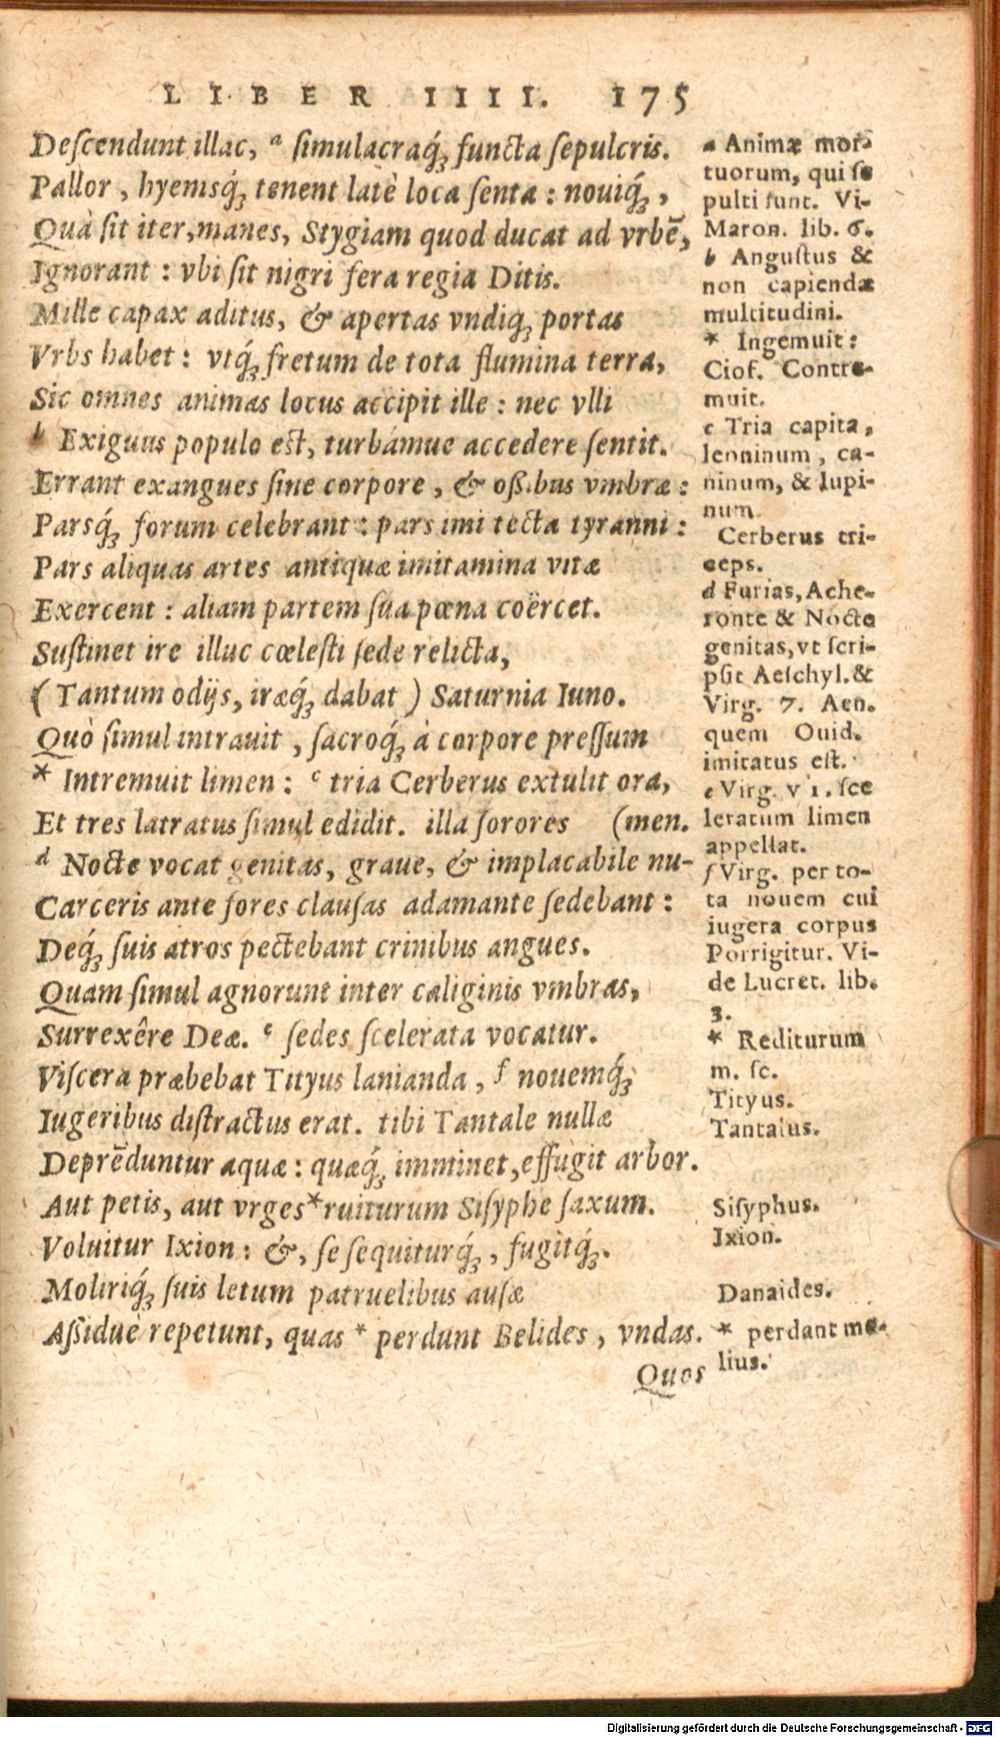 LIBER IIII. 175
Deſcendunt illac, ᵃ ſimulacraq́ꝫ functa ſepulcris.
Pallor, hyemsq́ꝫ tenent latè loca ſenta: nouiq́ꝫ,
Quà ſit iter, manes, Stygiam quod ducat ad vrbē,
Ignorant: vbi ſit nigri fera regia Ditis.
Mille capax aditus, & apertas vndiq́ꝫ portas
Vrbs habet: vtq́ꝫ fretum de tota flumina terra,
Sic omnes animas locus accipit ille: nec vlli
ᵇ Exiguus populo est, turbámue accedere ſentit.
Errant exangues ſine corpore, & oßibus vmbræ:
Parsq́ꝫ forum celebrant: pars imi tecta tyranni:
Pars aliquas artes antiquæ imitamina vitæ
Exercent: aliam partem ſua pœna coërcet.
Suſtinet ire illuc cœleſti ſede relicta,
(Tantum odijs, iræq́ꝫ dabat) Saturnia Iuno.
Quò ſimul intrauit, ſacroq́ꝫ à corpore preſſum
* Intremuit limen: ᶜ tria Cerberus extulit ora,
Et tres latratus ſimul edidit. illa ſorores (men.
ᵈ Nocte vocat genitas, graue, & implacabile nu-
Carceris ante fores clauſas adamante ſedebant:
Deq́ꝫ ſuis atros pectebant crinibus angues.
Quam ſimul agnorunt inter caliginis vmbras,
Surrexêre Deæ. ᵉ ſedes ſcelerata vocatur.
Viſcera præbebat Tityus lanianda, ᶠ nouemq́ꝫ
Iugeribus diſtractus erat. tibi Tantale nullæ
Deprēduntur aquæ: quæq́ꝫ imminet, effugit arbor.
Aut petis, aut vrges * ruiturum Siſyphe ſaxum.
Voluitur Ixion: &, ſe ſequiturq́ꝫ, fugitq́ꝫ.
Moliriq́ꝫ ſuis letum patruelibus auſæ
Aßiduè repetunt, quas * perdunt Belides, vndas.
Quos
a Animæ mor-
tuorum, qui ſe
pulti ſunt. Vi-
Maron. lib. 6.
b Anguſtus &
non capiendæ
multitudini.
* Ingemuit:
Ciof. Contre-
muit.
c Tria capita,
leoninum, ca-
ninum, & lupi-
num.
Cerberus tri-
ceps.
d Furias, Ache-
ronte & Nocte
genitas, vt ſcri-
pſit Aeſchyl. &
Virg. 7. Aen.
quem Ouid.
imitatus eſt.
e Virg. VI. ſce
leratum limen
appellat.
f Virg. per to-
ta nouem cui
iugera corpus
Porrigitur. Vi-
de Lucret. lib.
3.
* Rediturum
m. ſc.
Tityus.
Tantalus.
Siſyphus.
Ixion.
Danaides.
* perdant me-
lius.
Digitalisierung gefördert durch die Deutsche Forschungsgemeinschaft - DFG